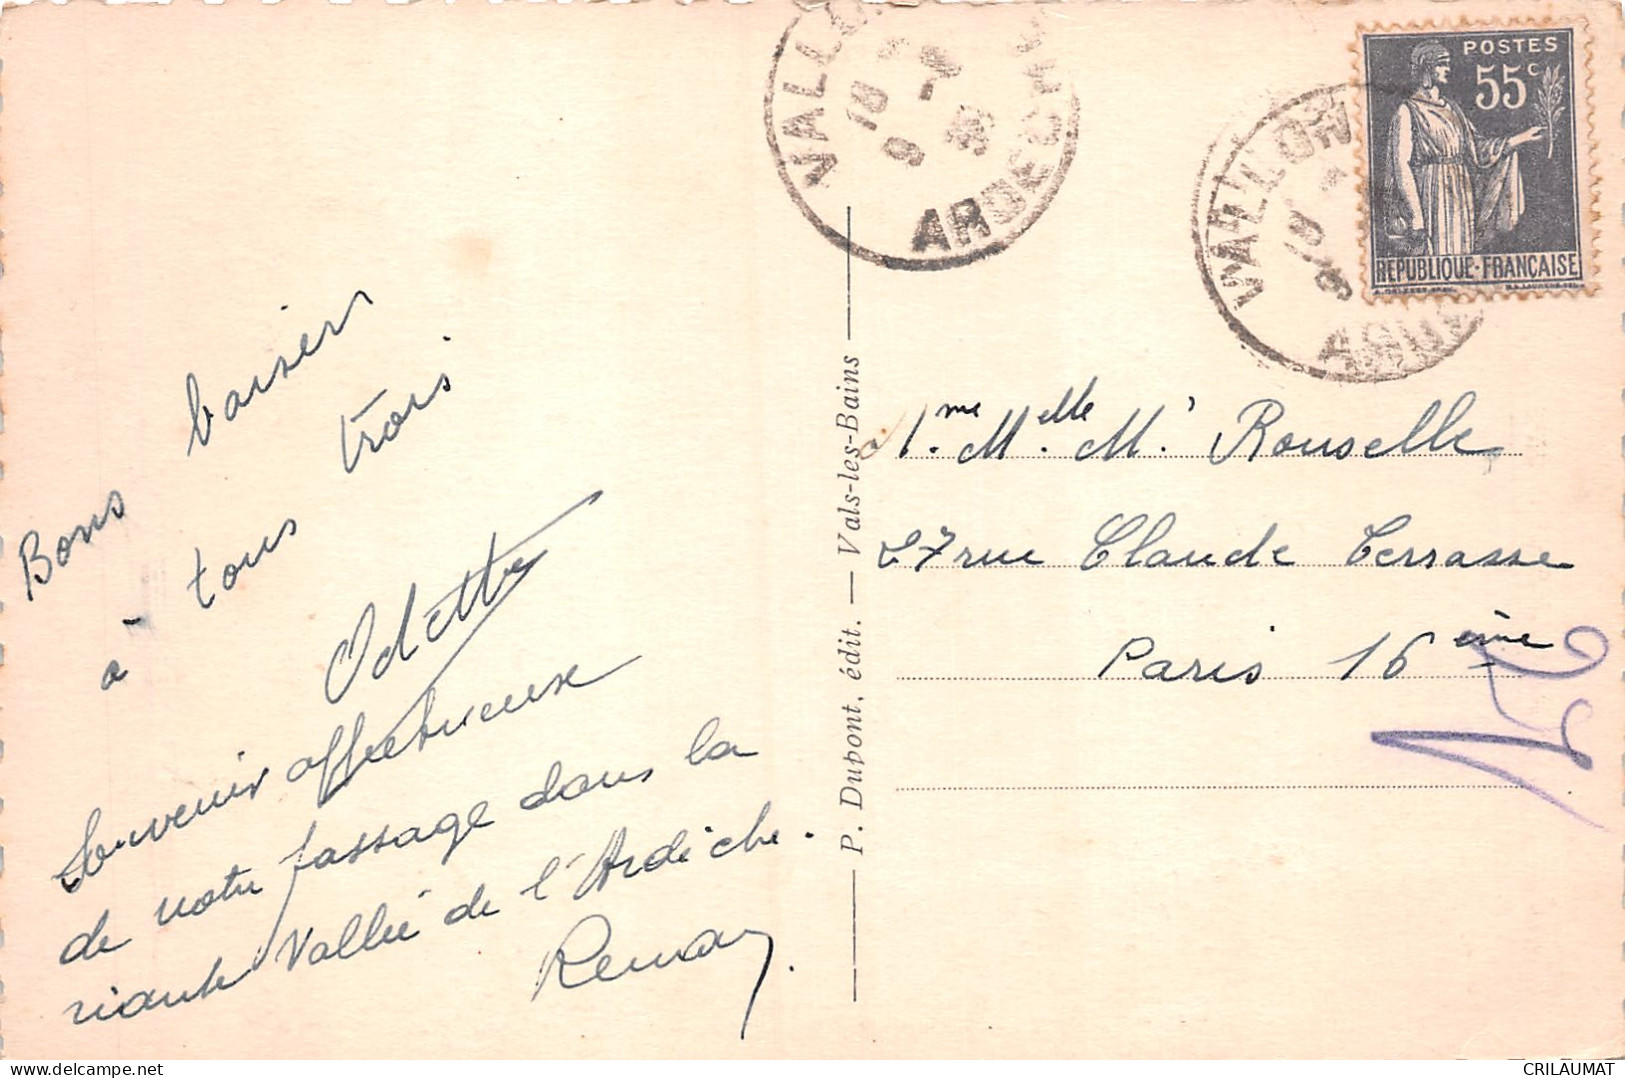 Bons baisers
à tous trois
Odette
Souvenir affectueux
de notre passage dans la
riante Vallée de l'Ardèche.
P. Dupont, édit. — Vals-les-Bains
VALLON
ARDECHE
18
9
VALLON
18
9
POSTES
55c
REPUBLIQUE-FRANÇAISE
à Mme Melle Mr Rouselle
27 rue Claude Terrasse
Paris 16ème
delcampe.net
CRILAUMAT